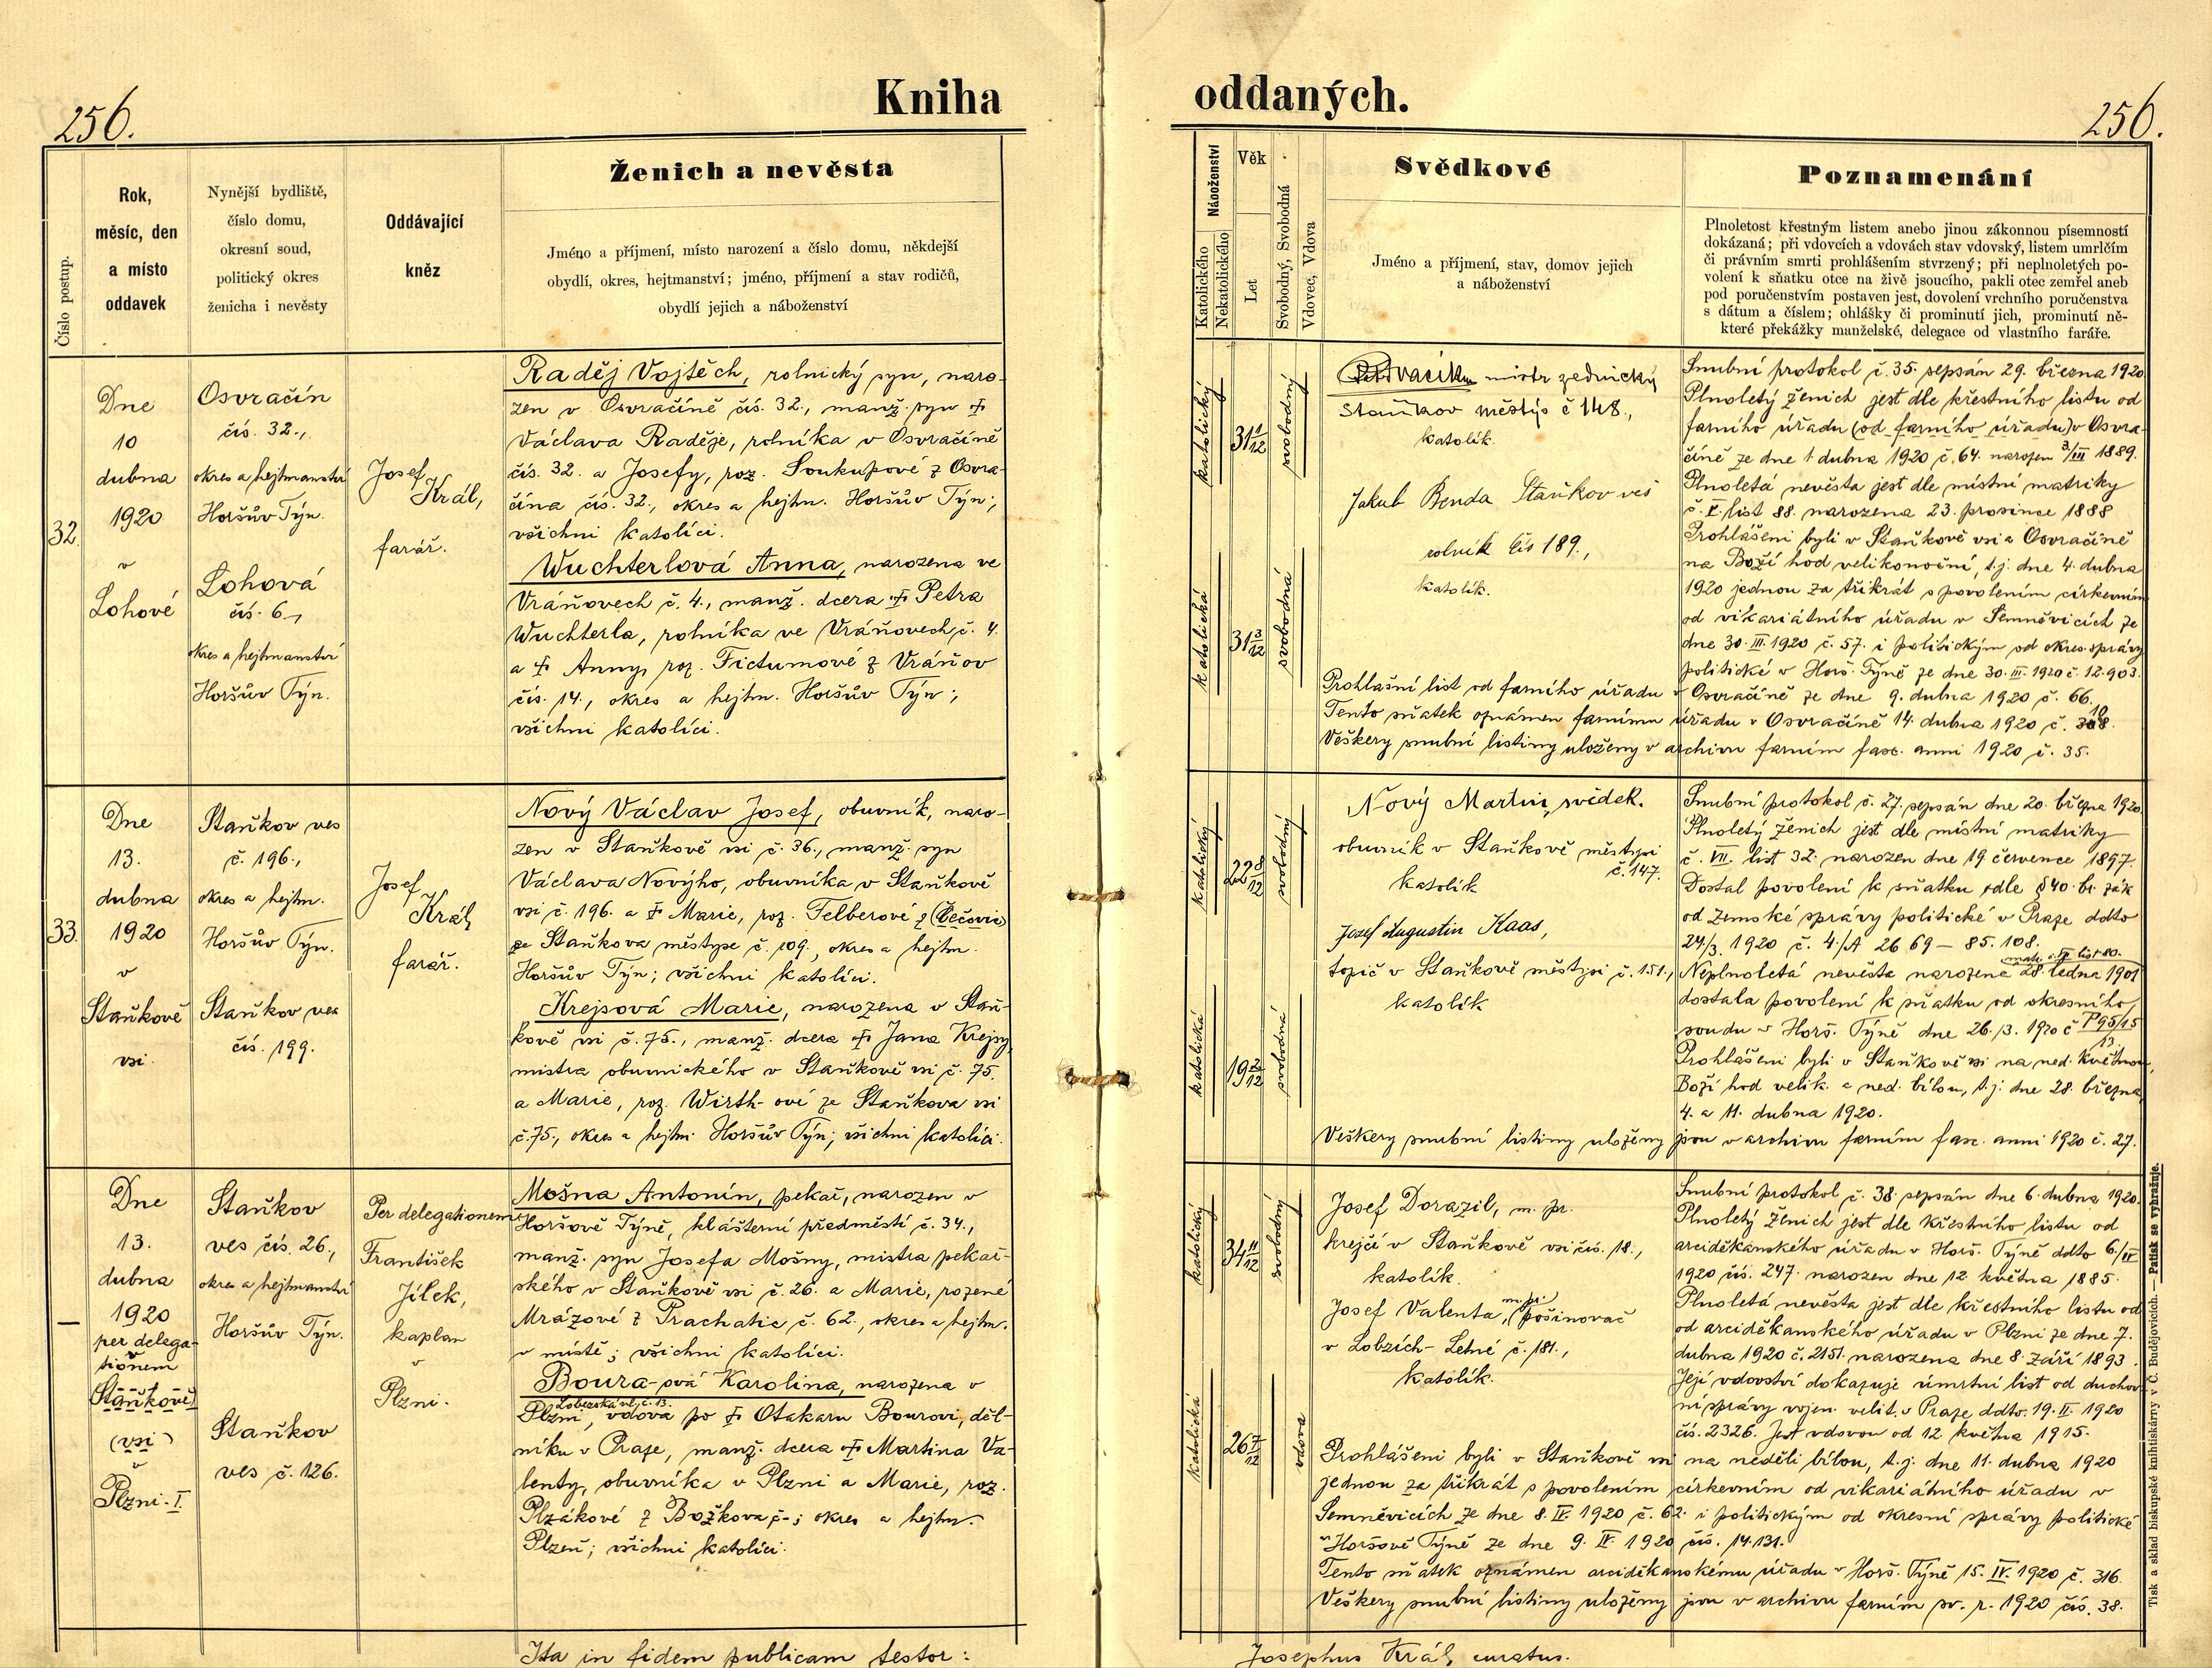 256.
Kniha
Číslo postup.
Rok,
měsíc, den
a místo
oddavek
Nynější bydliště,
číslo domu,
okresní soud,
politický okres
ženicha i nevěsty
Oddávající
kněz
Ženich a nevěsta
Jméno a příjmení, místo narození a číslo domu, někdejší
obydlí, okres, hejtmanství; jméno, příjmení a stav rodičů,
obydlí jejich a náboženství
32.
Dne
10
dubna
1920
v
Lohové
Osvračín
čís. 32.,
okres a hejtmanství
Horšův Týn.
Lohová
čís. 6.,
okres a hejtmanství
Horšův Týn.
Josef
Král,
farář.
Raděj Vojtěch, rolnický syn, naro-
zen v Osvračíně čís. 32., manž. syn †
Václava Raděje, rolníka v Osvračíně
čís. 32. a Josefy, roz. Soukupové z Osvra-
čína čís. 32., okres a hejtm. Horšův Týn;
všichni katolíci.
Wuchterlová Anna, narozena ve
Vráňovech č. 4., manž. dcera † Petra
Wuchterla, rolníka ve Vráňovech č. 4.
a † Anny, roz. Fictumové z Vráňov
čís. 14., okres a hejtm. Horšův Týn;
všichni katolíci.
33.
Dne
13.
dubna
1920
v
Staňkově
vsi.
Staňkov ves
č. 196.,
okres a hejtm.
Horšův Týn.
Staňkov ves
čís. 199.
Josef
Král,
farář.
Nový Václav Josef, obuvník, naro-
zen v Staňkově vsi č. 36., manž. syn
Václava Novýho, obuvníka v Staňkově
vsi č. 196. a † Marie, roz. Felberové z (Čečovic)
ze Staňkova městyse č. 109., okres a hejtm.
Horšův Týn; všichni katolíci.
Krejsová Marie, narozena v Staň-
kově vsi č. 75., manž. dcera † Jana Krejsy,
mistra obuvnického v Staňkově vsi č. 75.
a Marie, roz. Wirth-ové ze Staňkova vsi
č. 75., okres a hejtm. Horšův Týn; všichni katolíci.
—
Dne
13.
dubna
1920
per delega-
tionem
v
Staňkově
(vsi)
v
Plzni-I.
Staňkov
ves čís. 26.,
okres a hejtmanství
Horšův Týn.
Staňkov
ves č. 126.
Per delegationem
František
Jílek,
kaplan
v
Plzni.
Mošna Antonín, pekař, narozen v
Horšově Týně, klášterní předměstí č. 34.,
manž. syn Josefa Mošny, mistra pekař-
ského v Staňkově vsi č. 26. a Marie, rozené
Mrázové z Prachatic č. 62., okres a hejtm.
v místě; všichni katolíci.
Boura-ová Karolina, narozena v
Lobezská ul. č. 13.
Plzni, vdova po † Otakaru Bourovi, děl-
níku v Praze, manž. dcera † Martina Va-
lenty, obuvníka v Plzni a Marie, roz.
Plzákové z Božkova č-; okres a hejtm.
Plzeň; všichni katolíci.
Ita in fidem publicam testor:
oddaných.
256.
Náboženství
Katolického
Nekatolického
Věk
Let
Svobodný, Svobodná
Vdovec, Vdova
Svědkové
Jméno a příjmení, stav, domov jejich
a náboženství
Poznamenání
Plnoletost křestným listem anebo jinou zákonnou písemností
dokázaná; při vdovcích a vdovách stav vdovský, listem umrlčím
či právním smrti prohlášením stvrzený; při neplnoletých po-
volení k sňatku otce na živě jsoucího, pakli otec zemřel aneb
pod poručenstvím postaven jest, dovolení vrchního poručenstva
s dátum a číslem; ohlášky či prominutí jich, prominutí ně-
které překážky manželské, delegace od vlastního faráře.
katolický
31 1/12
svobodný
katolická
31 3/12
svobodná
mistr zednický
Staňkov městys č 148.,
katolík.
Jakub Benda Staňkov ves
rolník čís 189.,
katolík.
Snubní protokol č. 35. sepsán 29. března 1920
Plnoletý ženich jest dle křestního listu od
farního úřadu (od farního úřadu) v Osvra-
číně ze dne 1 dubna 1920 č. 64. narozen 3/III 1889.
Plnoletá nevěsta jest dle místní matriky
č. V. list 88. narozena 23. prosince 1888
Prohlášeni byli v Staňkově vsi a Osvračíně
na Boží hod velikonoční, t.j. dne 4. dubna
1920 jednou za třikrát s povolením církevním
od vikariátního úřadu v Semněvicích ze
dne 30. III. 1920 č. 57. i politickým od okres. správy
politické v Horš. Týně ze dne 30. III. 1920 č. 12.903.
Prohlašní list od farního úřadu v Osvračíně ze dne 9. dubna 1920 č. 66.
Tento sňatek oznámen farnímu úřadu v Osvračíně 14. dubna 1920 č.
Veškery snubní listiny uloženy v archivu farním fasc. anni 1920 č. 35.
katolický
22 8/12
svobodný
katolická
19 2/12
svobodná
Nový Martin, svědek.
obuvník v Staňkově městysi
č. 147.
katolík
Josef Augustin Kaas,
topič v Staňkově městysi č. 151.,
katolík
Snubní protokol č. 27. sepsán dne 20. března 1920
Plnoletý ženich jest dle místní matriky
č. VII. list 32. narozen dne 19 července 1897.
Dostal povolení k sňatku dle § 40. br. zák
od Zemské správy politické v Praze ddto
24/3. 1920 č. 4./A 26 69 — 85. 108.
Neplnoletá nevěsta narozena 28. ledna 1901
dostala povolení k sňatku od okresního
soudu v Horš. Týně dne 26./3. 1920 č P 95/15
13.
Prohlášeni byli v Staňkově vsi na ned. Květnou,
Boží hod velik. a ned. bílou, t.j. dne 28. března,
4. a 11. dubna 1920.
Veškery snubní listiny uloženy jsou v archivu farním fasc. anni 1920 č. 27.
katolický
34 11/12
svobodný
katolická
26 7/12
vdova
Josef Dorazil, m. pr.
krejčí v Staňkově vsi čís. 18.,
katolík.
m. pr.
Josef Valenta, pošinovač
v Lobzích-Letné č. 181.,
katolík.
Snubní protokol č. 38. sepsán dne 6. dubna 1920.
Plnoletý ženich jest dle křestního listu od
arciděkanského úřadu v Horš. Týně ddto 6./IV
1920 čís. 247. narozen dne 12 května 1885.
Plnoletá nevěsta jest dle křestního listu od
od arciděkanského úřadu v Plzni ze dne 7.
dubna 1920 č. 2151. narozena dne 8. září 1893.
Její vdovství dokazuje úmrtní list od duchov
ní správy vojen. velit. v Praze ddto. 19. II. 1920
čís. 2326. Jest vdovou od 12 května 1915.
Prohlášeni byli v Staňkově vsi na neděli bílou, t.j. dne 11. dubna 1920
jednou za třikrát s povolením církevním od vikariátního úřadu v
Semněvicích ze dne 8. IV. 1920 č. 62. i politickým od okresní správy politické
v Horšově Týně ze dne 9. IV. 1920 čís. 14.131.
Tento sňatek oznámen arciděkanskému úřadu v Horš. Týně 15. IV. 1920 č. 316.
Veškery snubní listiny uloženy jsou v archivu farním sv. r. 1920 čís. 38.
Josephus Král, curatus.
Tisk a sklad biskupské knihtiskárny v Č. Budějovicích. — Patisk se vyhražuje.